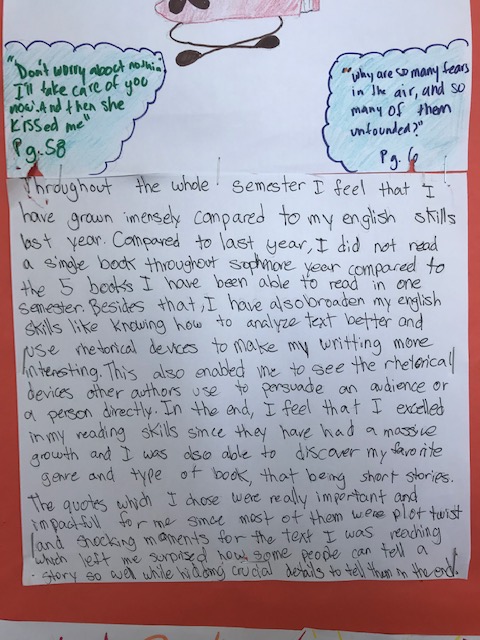 "Don't worry about nothin
I'll take care of you
now. And then she
kissed me"
Pg. 58
"why are so many fears
in the air, and so
many of them
unfounded?"
Pg. 6
Throughout the whole semester I feel that I
have grown imensely compared to my english skills
last year. Compared to last year, I did not read
a single book throughout sophmore year compared to
the 5 books I have been able to read in one
semester. Besides that, I have also broaden my english
skills like knowing how to analyze text better and
use rhetorical devices to make my writting more
intersting. This also enabled me to see the rhetorical
devices other authors use to persuade an audience or
a person directly. In the end, I feel that I excelled
in my reading skills since they have had a massive
growth and I was also able to discover my favorite
genre and type of book, that being short stories.
The quotes which I chose were really important and
impactfull for me since most of them were plot twist
and shocking moments for the text I was reaching
which left me surprised how some people can tell a
story so well while hidding crucial details to tell them in the end.